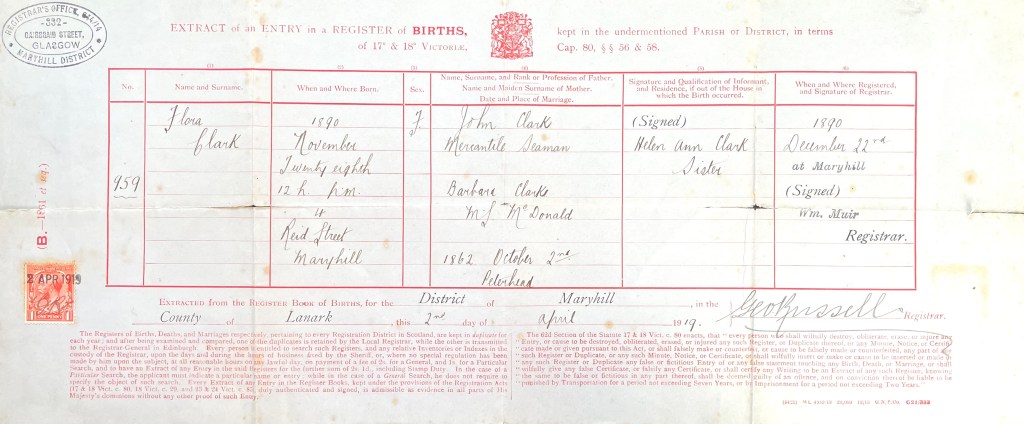 REGISTRAR'S OFFICE, 644/14
-332-
STREET,
GLASGOW
MARYHILL DISTRICT
EXTRACT of an ENTRY in a REGISTER of BIRTHS, kept in the undermentioned PARISH or DISTRICT, in terms
of 17° & 18° VICTORIÆ, Cap. 80, §§ 56 & 58.
(1) (2) (3) (4) (5) (6)
No.
Name and Surname.
When and Where Born.
Sex.
Name, Surname, and Rank or Profession of Father.
Name and Maiden Surname of Mother.
Date and Place of Marriage.
Signature and Qualification of Informant,
and Residence, if out of the House in
which the Birth occurred.
When and Where Registered,
and Signature of Registrar.
959
Flora
Clark
1890
November
Twenty eighth
12 h p.m.
4
Reid Street
Maryhill
F.
John Clark
Mercantile Seaman
Barbara Clark
M.S. McDonald
1862 October 2nd
Peterhead
(Signed)
Helen Ann Clark
Sister
1890
December 22nd
at Maryhill
(Signed)
Wm. Muir
Registrar.
(B.—1861 et sq.)
2 APR 1919
EXTRACTED from the REGISTER BOOK OF BIRTHS, for the District of Maryhill, in the
County of Lanark, this 2nd day of April 1919. Geo Russell Registrar.
The Registers of Births, Deaths, and Marriages respectively, pertaining to every Registration District in Scotland, are kept in duplicate
each year; and after being examined and compared, one of the duplicates is retained by the Local Registrar, while the other is transmitted
to the Registrar-General in Edinburgh. Every person is entitled to search such Registers, and any relative Inventories or Indexes in the
custody of the Registrar, upon the days and during the hours of business fixed by the Sheriff, or, where no special regulation has been
made by him upon the subject, at all reasonable hours on any lawful day, on payment of a fee of 2s. for a General, and 1s. for a Particular
Search, and to have an Extract of any Entry in the said Registers for the further sum of 2s. 1d., including Stamp Duty. In the case of a
Particular Search, the applicant must indicate a particular person or entry; while in the case of a General Search, he does not require to
specify the object of such search. Every Extract of any Entry in the Register Books, kept under the provisions of the Registration Acts
(17 & 18 Vict. c. 80, 18 Vict. c. 29, and 23 & 24 Vict. c. 85), duly authenticated and signed, is admissible as evidence in all parts of His
Majesty's dominions without any other proof of such Entry.
The 62d Section of the Statute 17 & 18 Vict. c. 80 enacts, that "every person who shall wilfully destroy, obliterate, erase, or injure any
"Entry, or cause to be destroyed, obliterated, erased, or injured any such Register, or Duplicate thereof, or any Minute, Notice, or Certifi-
"cate made or given pursuant to this Act, or shall falsely make or counterfeit, or cause to be falsely made or counterfeited, any part of
"such Register or Duplicate, or any such Minute, Notice, or Certificate, or shall wilfully insert or make or cause to be inserted or made in
"any such Register or Duplicate any false or fictitious Entry of or any false statement touching any Birth, Death, or Marriage, or shall
"wilfully give any false Certificate, or falsely any Certificate, or shall certify any Writing to be an Extract of any such Register, knowing
"the same to be false or fictitious in any part thereof, shall be deemed guilty of an offence, and on conviction thereof be liable to be
"punished by Transportation for a period not exceeding Seven Years, or by Imprisonment for a period not exceeding Two Years."